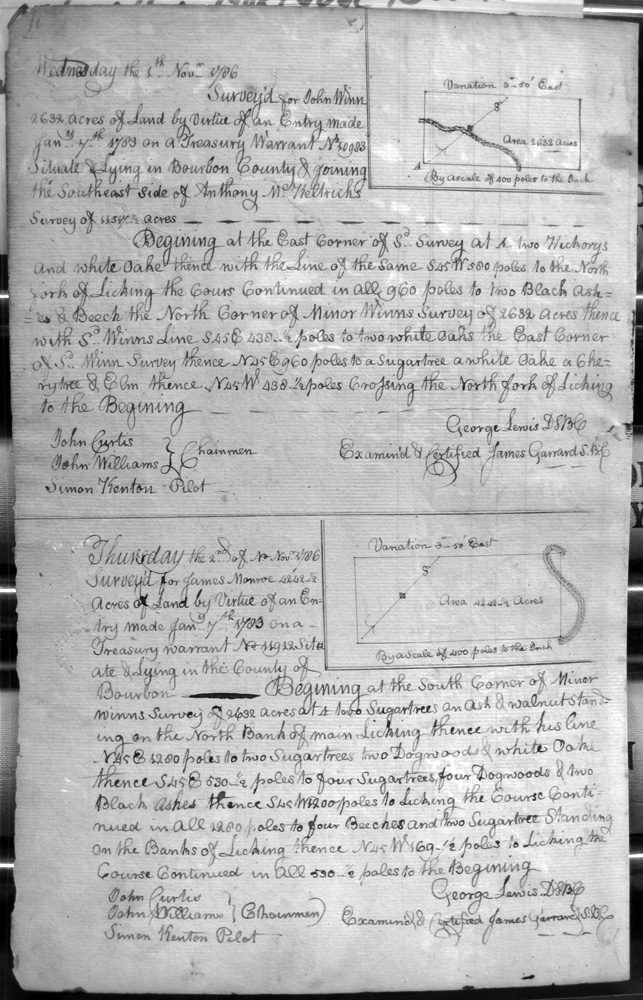 Wednesday the 1th Novm 1786
Survey'd for John Winn
2632 Acres of Land by Virtue of an Entry made
Jany 7th 1783 on a Treasury Warrant No
Situate & Lying in Bourbon County & joining
the Southeast side of Anthony Mc Keltrichs
Survey of acres
Variation 3°-50' East
Area 2632 Acres
A
By a scale of 400 poles to the Inch
Begining at the East Corner of Sd Survey at A two Hickorys
And white Oake thence with the Line of the Same S45W 580 poles to the North
fork of Licking the Cours Continued in all 960 poles to two Black Ash=
=es & Beech the North Corner of Minor Winns Survey of 2632 Acres thence
with Sd Winns Line S45E 438-½ poles to two white Oaks the East Corner
of Sd Winn Survey thence N45E 960 poles to a Sugartree a white Oake a Che=
rytree & Elm thence N45W 438-½ poles Crossing the North fork of Licking
to the Begining
George Lewis DSBC
John Curtis
John Williams } Chainmen
Examin'd & Certified James Garrard S.B.C
Simon Kenton Pilot
Thursday the 2nd of Novr 1786
Survey'd for James Monroe 4242-½
Acres of Land by Virtue of an En=
try made Jany 7th 1783 on a
Treasury warrant No 11922 Situ
ate & Lying in the County of
Variation 3°-50' East
Area 4242-½ Acres
By a Scale of 400 poles to the Inch
Bourbon Begining at the South Corner of Minor
Winns Survey of 2632 Acres at A two Sugartrees an Ash & walnut Stand=
ing on the North Bank of main Licking thence with his line
N45E 1280 poles to two Sugartrees two Dogwoods & white Oake
thence S45E 530-½ poles to four Sugartrees, four Dogwoods & two
Black Ashes thence S45W 1200 poles to Licking the Course Conti=
nued in All 1280 poles to four Beeches and two Sugartree Standing
on the Banks of Licking thence N45W 169-½ poles to Licking the
Course Continued in all 530-½ poles to the Begining
George Lewis DSBC
John Curtis
John Williams } Chainmen
Examin'd & Certified James Garrard S.B.C
Simon Kenton Pilot